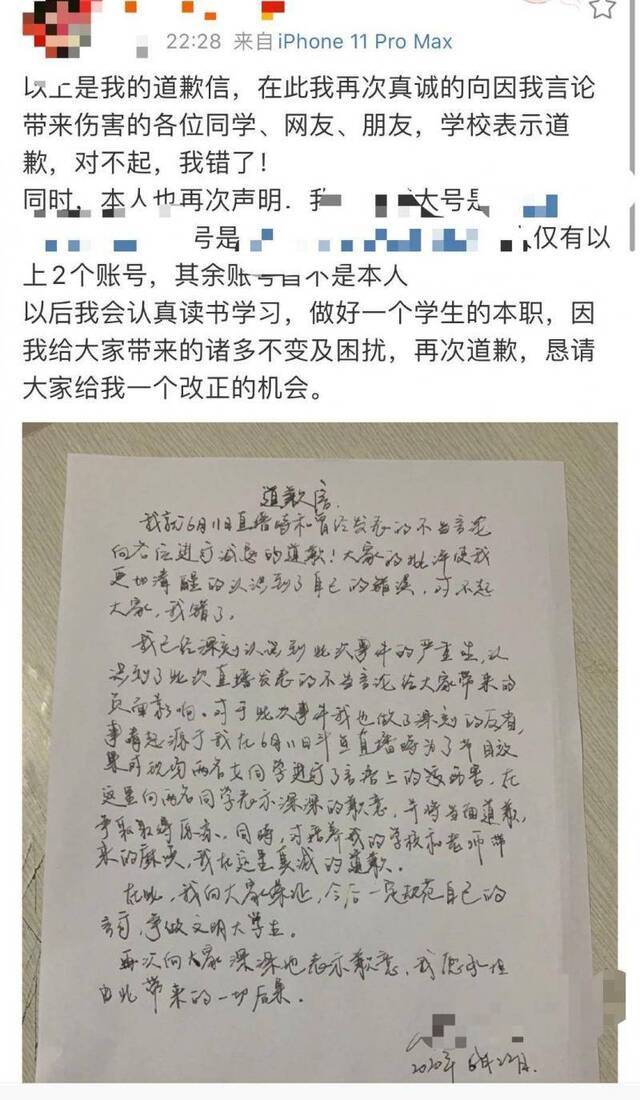 22:28 来自 iPhone 11 Pro Max
以上是我的道歉信，在此我再次真诚的向因我言论
带来伤害的各位同学、网友、朋友，学校表示道
歉，对不起，我错了！
同时，本人也再次声明．我 大号是
号是 仅有以
上2个账号，其余账号皆不是本人
以后我会认真读书学习，做好一个学生的本职，因
我给大家带来的诸多不变及困扰，再次道歉，恳请
大家给我一个改正的机会。
道歉信.
我就6月11日直播时和曾经发表的不当言论
向各位进行诚恳的道歉！大家的批评使我
更加清醒的认识到了自己的错误，对不起
大家，我错了。
我已经深刻认识到此次事件的严重性，认
识到了此次直播发表的不当言论给大家带来的
负面影响。对于此次事件我也做了深刻的反省，
事情起源于我在6月11日斗鱼直播时为了节目效
果对视频两名女同学进行了言语上的 伤害，在
这里向两名同学表示深深的歉意，并将当面道歉，
争取取得原谅。同时，对培养我的学校和老师带
来的麻烦，我在这里真诚的道歉。
在此，我向大家保证，今后一定规范自己的
言行，争做文明大学生。
再次向大家深深地表示歉意，我愿承担
由此带来的一切后果。
2020年6月22日.